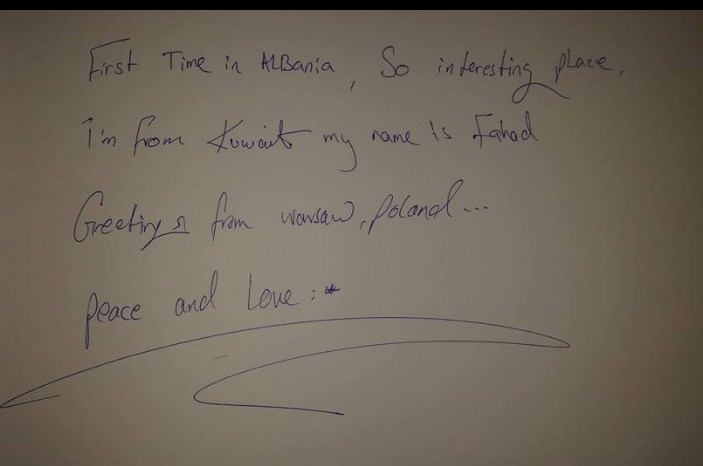 First Time in ALBania, So interesting place,
I'm from Kuwait my name is Fahad
Greetings from warsaw, poland...
peace and Love :*